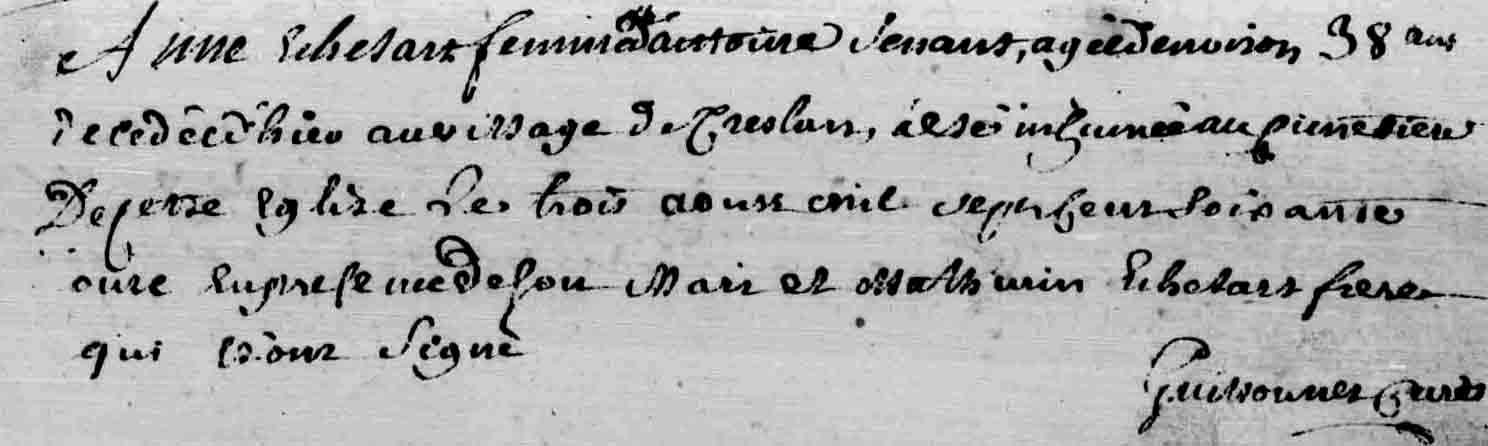 Anne Echetart femme d'antoine Senant, ageé denviron 38 ans
decedeé d'hier au village de Treslan, a esté inhumeé au cimetiere
De cette Eglise Le trois aoust mil sept cent soixante
onze En presence de son Mari et Mathurin Echetart frere
qui n'ont Signé
Guissonnet Curé